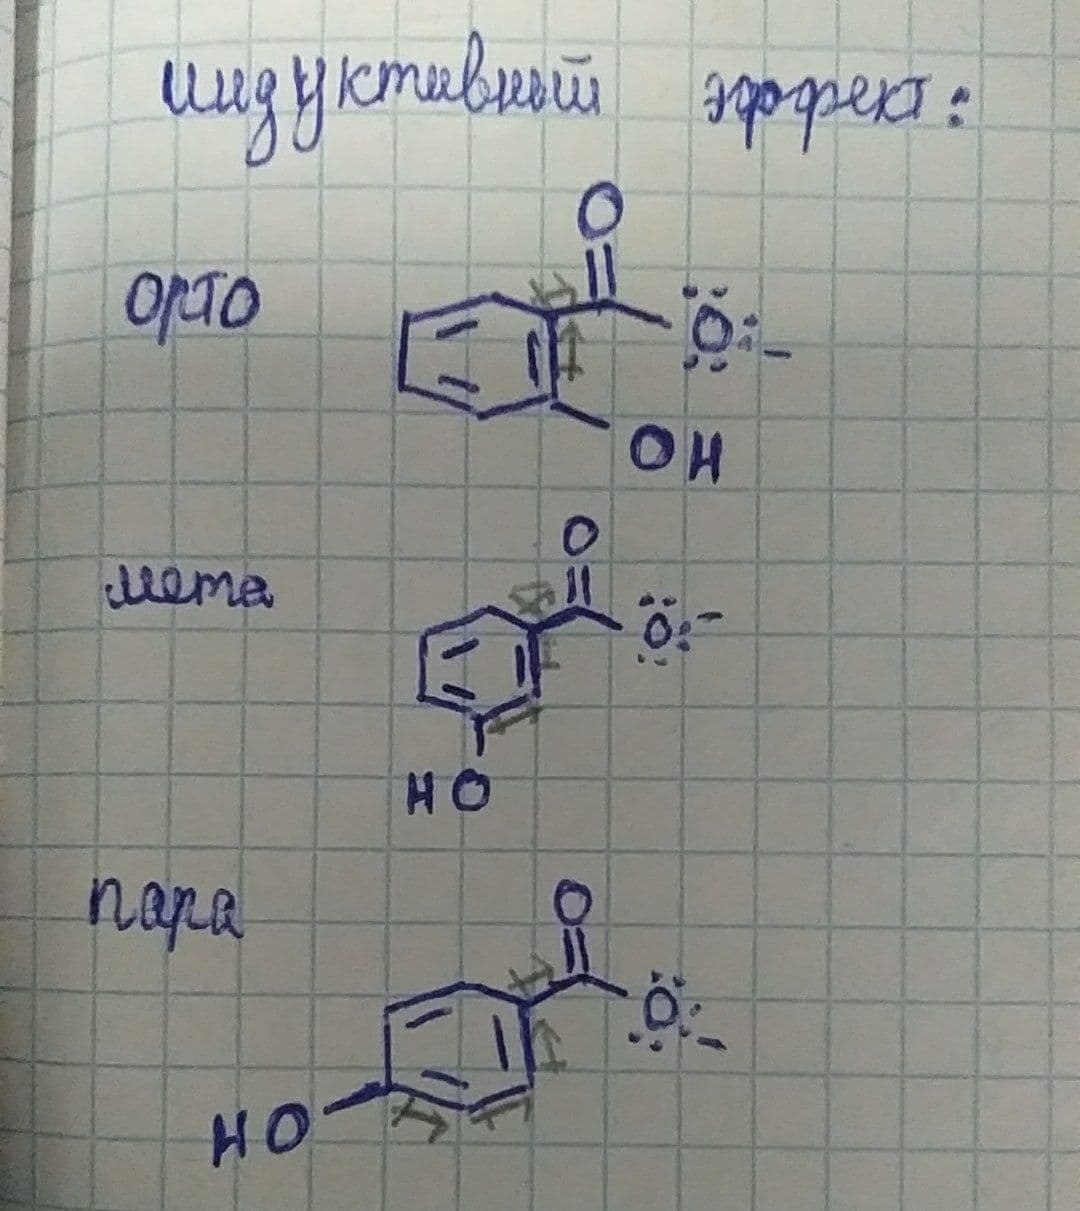 индуктивный эффект:
O
орто
O:-
OH
O
мета
O:-
HO
O
пара
O:-
HO